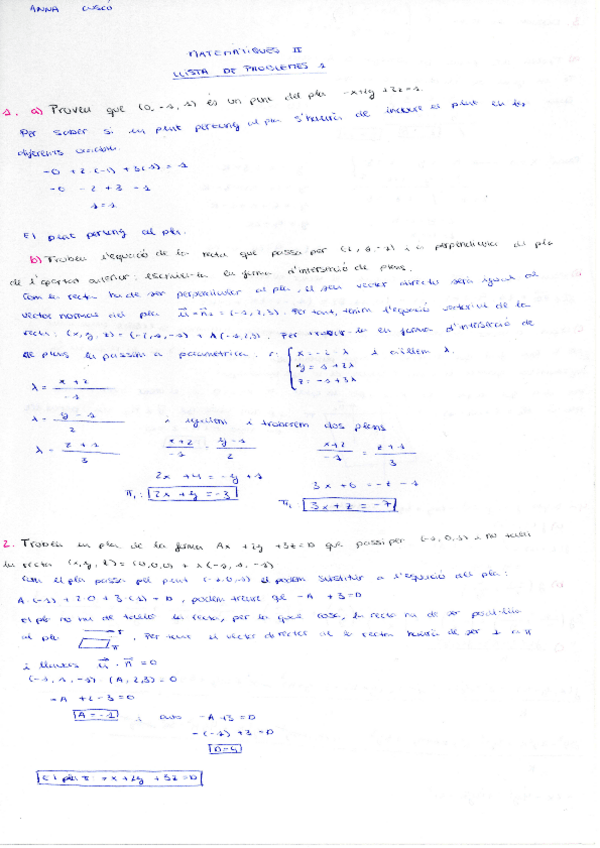 ANNA CUSCÓ
MATEMÀTIQUES II
LLISTA DE PROBLEMES 1
1. a) Proveu que (0,-1,1) és un punt del pla -x+2y+3z=1.
Per saber si un punt pertany al pla s'hauria de el punt en les
diferents
-0 + 2·(-1) + 3(1) = 1
-0 -2 + 3 = 1
1 = 1
El punt pertany al pla.
b) Trobeu l'equació de la recta que passa per i és perpendicular al pla
de l'apartat anterior; escriviu-la en forma d'intersecció de plans.
Com la recta ha de ser perpendicular al pla, el seu vector director serà igual al
vector normal del pla = (-1,2,3). Per tant, tenim l'equació vectorial de la
recta: (x,y,z) = (-2,1,-1) + λ(-1,2,3). Per trobar-la en forma d'intersecció de
de plans la passem a paramètrica. r: x = -2 - λ i aïllem λ.
y = 1 + 2λ
z = -1 + 3λ
λ = x+2 / -1
λ = y-1 / 2 i igualem i trobarem dos plans
λ = z+1 / 3 x+2 / -1 = y-1 / 2 x+2 / -1 = z+1 / 3
2x + 4 = -y + 1 3x + 6 = -z - 1
π₁: 2x + y = -3 π₂: 3x + z = -7
2. Trobeu un pla de la forma Ax + 2y + 3z = D que passi per (-1,0,1) i no talli
la recta (x,y,z) = (0,0,0) + λ(-1,1,-1)
Com el pla passa pel punt (-1,0,1) el podem substituir a l'equació del pla:
A·(-1) + 2·0 + 3·(1) = D, podem treure que -A + 3 = D
El pla no ha de tallar la recta, per la qual cosa, la recta ha de ser paral·lela
al pla r π. Per tant el vector director de la recta hauria de ser ⊥ a π
i llavors u · n = 0
(-1,1,-1)·(A,2,3) = 0
-A + 2 - 3 = 0
A = -1 i -A + 3 = D
-(-1) + 3 = D
D = 4